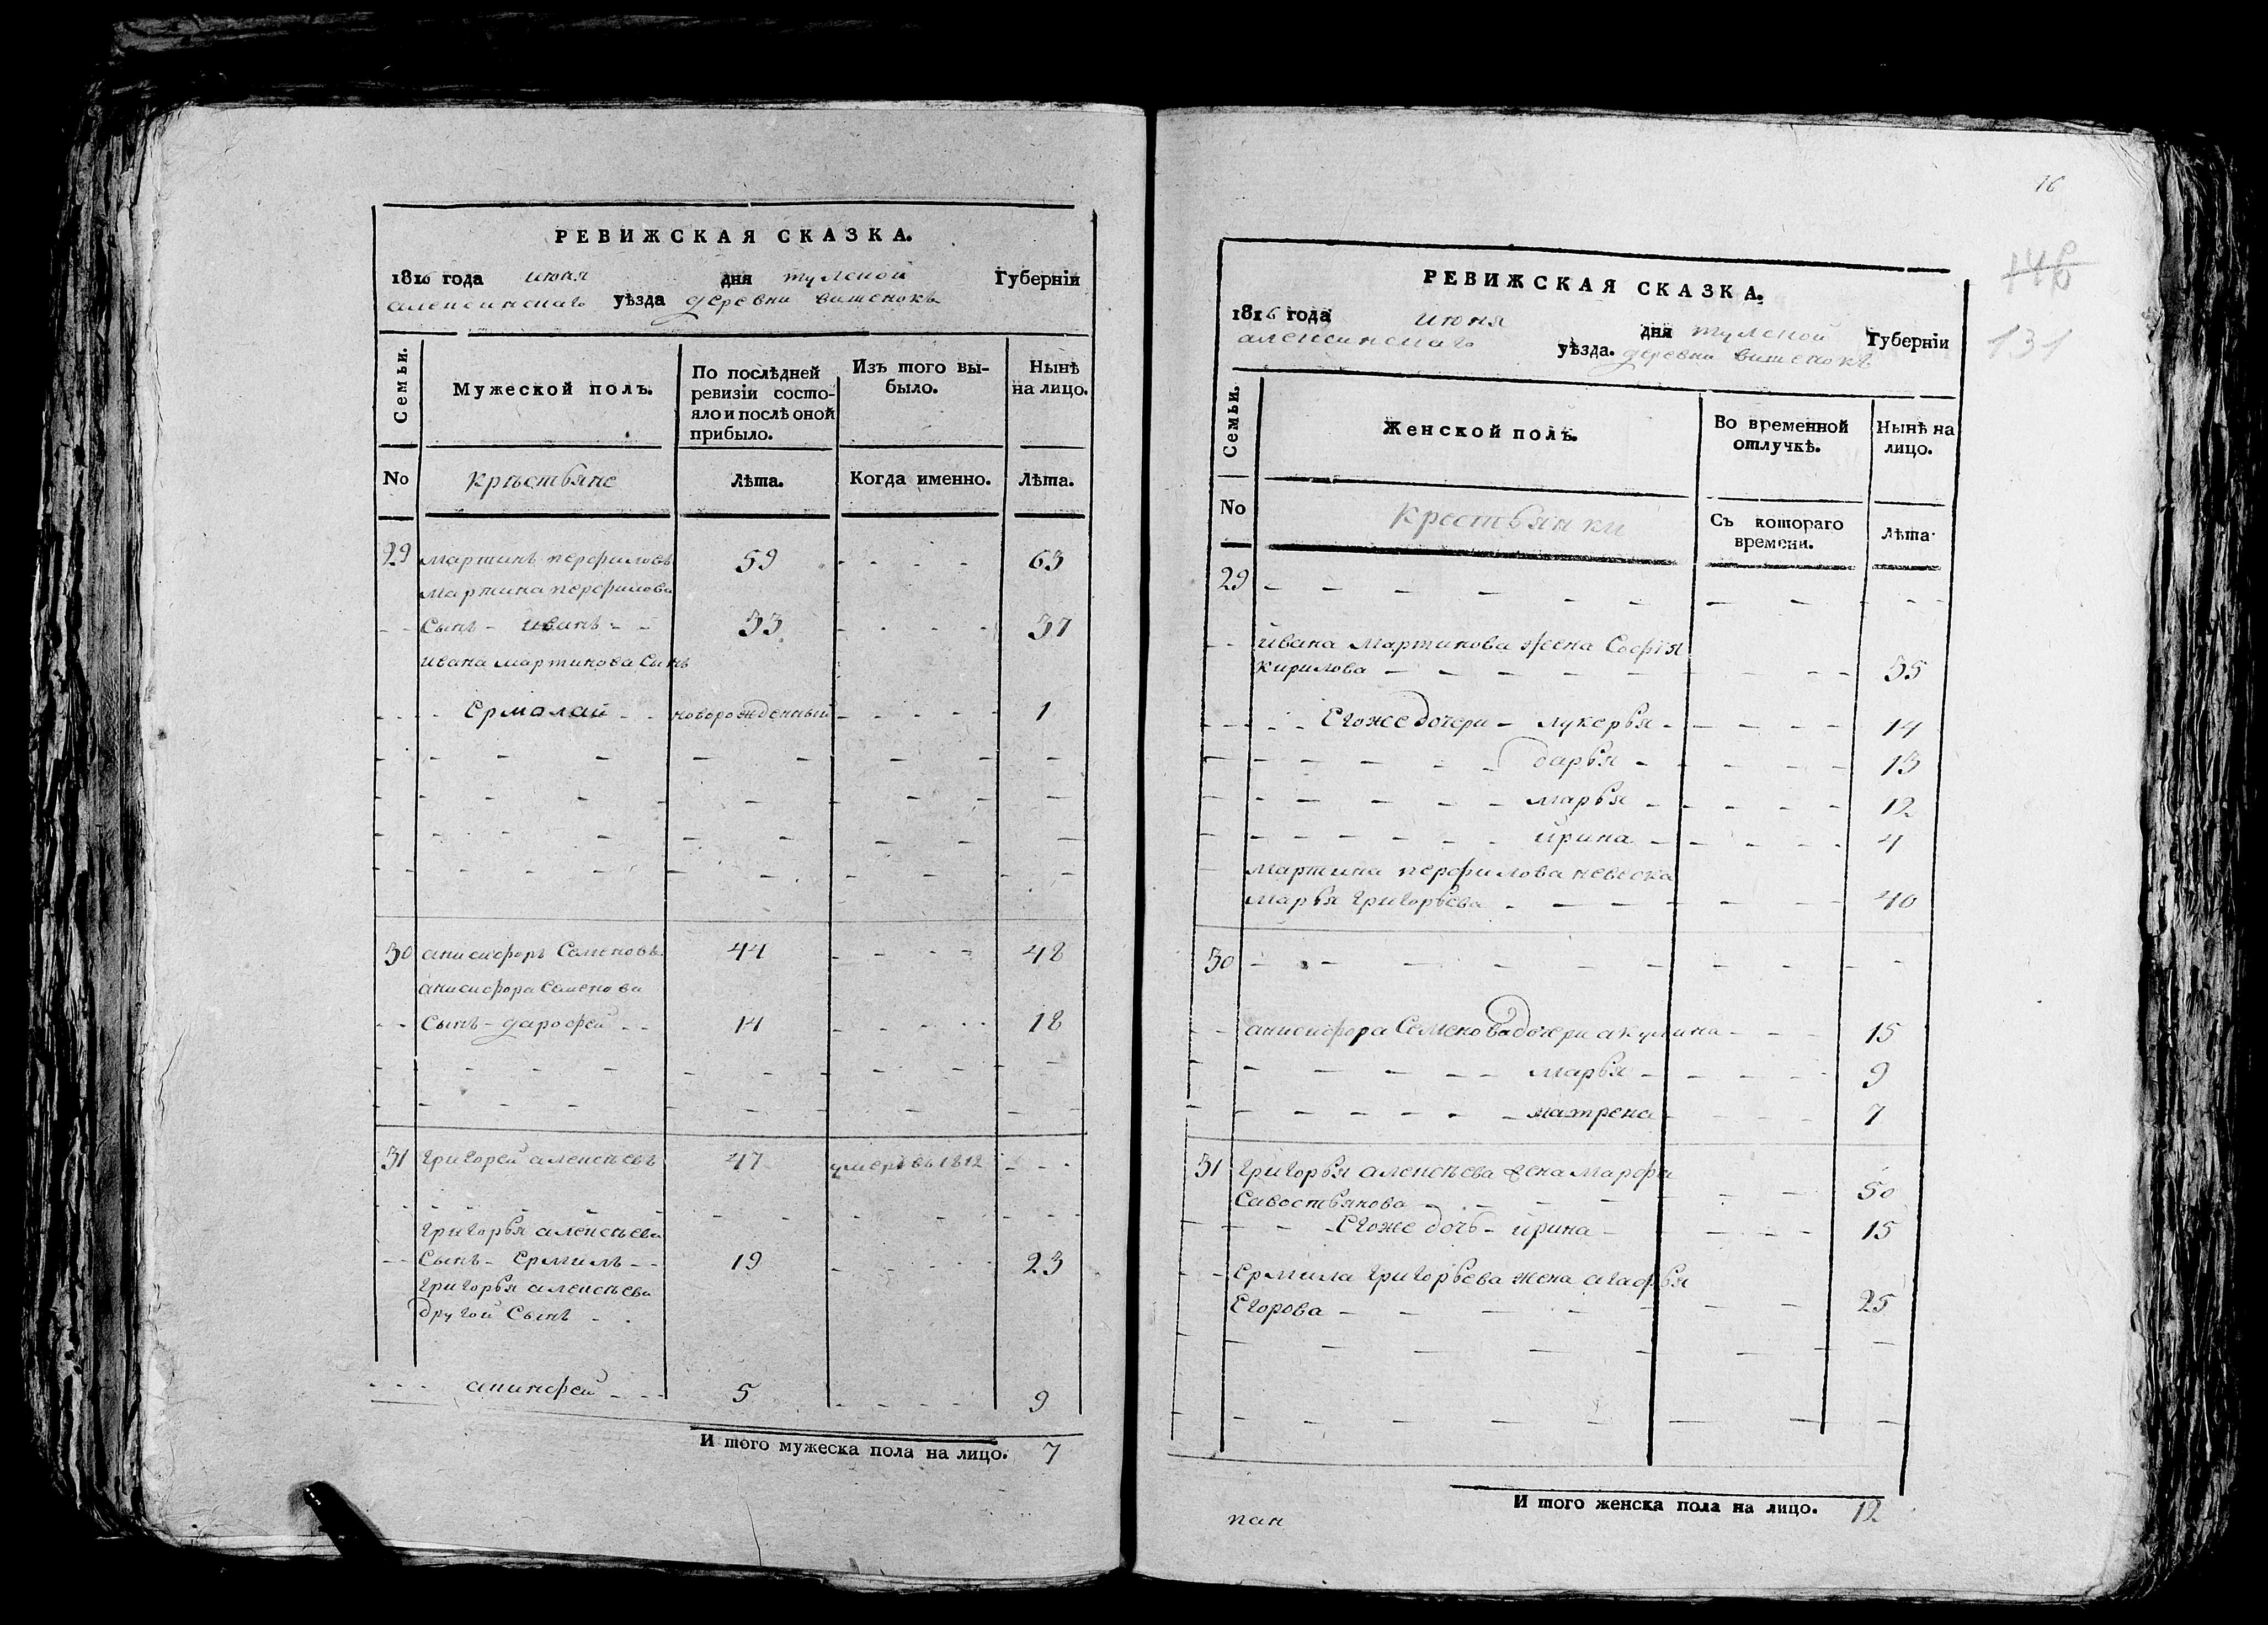 РЕВИЖСКАЯ СКАЗКА.
1816 года июня дня тулской Губернiи
алексинскаго уѣзда деревни вишенокъ
Семьи. Мужеской полъ. По послѣдней ревизiи состояло и послѣ оной прибыло. Изъ того выбыло. Нынѣ на лицо.
No крѣстьяне Лѣта. Когда именно. Лѣта.
29 мартинъ перфиловъ 59 - - - - 63
мартина перфилова
- - Сынъ - иванъ - - 33 - - - - 37
ивана мартинова Сынъ
- - - - Ермолай - - новорожденный - - - - - 1
30 анисифоръ Семеновъ 44 - - - - 48
анисифора Семенова
- - Сынъ - дарофей - - 14 - - - - 18
31 григорей алексѣевъ 47 умеръ въ 1812 - - -
григорья алексѣева
- - Сынъ - Ермилъ - - 19 - - - - 23
григорья алексѣева
другой Сынъ - -
- - - акинфей - - - 5 - - - - 9
И того мужеска пола на лицо. 7
16
146
131
РЕВИЖСКАЯ СКАЗКА.
1816 года июня дня тулской Губернiи
алексинскаго уѣзда. деревни вишенокъ
Семьи. Женской полъ. Во временной отлучкѣ. Нынѣ на лицо.
No крестьянки Съ котораго времени. Лѣта.
29 - - - - - - - - - -
- - ивана мартинова жена Софiя
кирилова - - - - - - - 35
- - - - Егоже дочери - лукерья - - - - - 14
дарья - - - - - 13
марья - - - - - 12
ирина - - - - - 4
мартина перфилова невеска
марья григорьева - - - - - - 40
30 - - - - - - - - - -
- - анисифора Семенова дочери акулина - - - 15
марья - - - - - 9
матрена - - - - 7
31 григорья алексѣева жена марфа
Савостьянова - - - - - - 50
- - - Егоже дочь - ирина - - - - - 15
- - Ермила григорьева жена агафья
Егорова - - - - - - - 25
И того женска пола на лицо. 12